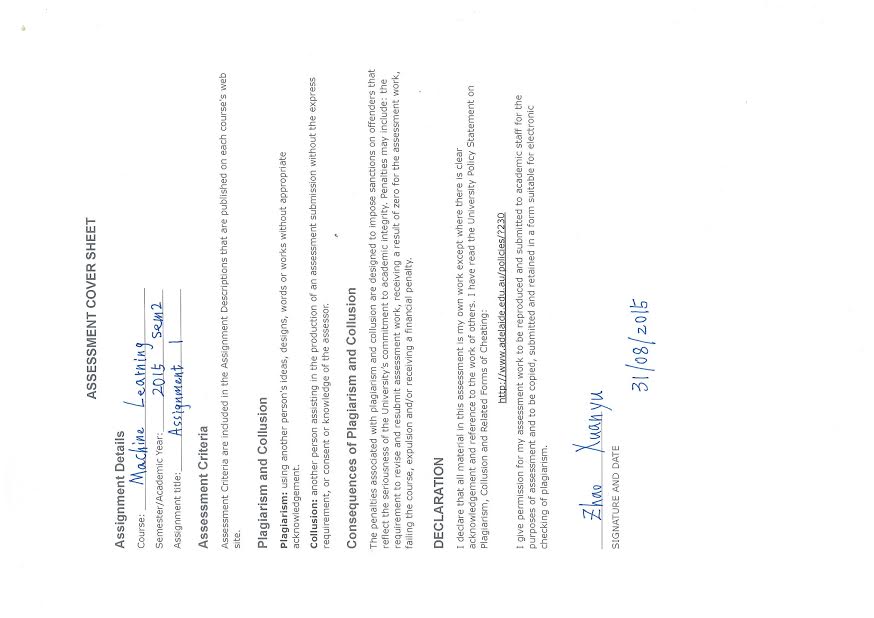 ASSESSMENT COVER SHEET
Assignment Details
Course: Machine Learning
Semester/Academic Year: 2015 Sem2
Assignment title: Assignment 1
Assessment Criteria
Assessment Criteria are included in the Assignment Descriptions that are published on each course's web
site.
Plagiarism and Collusion
Plagiarism: using another person's ideas, designs, words or works without appropriate
acknowledgement.
Collusion: another person assisting in the production of an assessment submission without the express
requirement, or consent or knowledge of the assessor.
Consequences of Plagiarism and Collusion
The penalties associated with plagiarism and collusion are designed to impose sanctions on offenders that
reflect the seriousness of the University's commitment to academic integrity. Penalties may include: the
requirement to revise and resubmit assessment work, receiving a result of zero for the assessment work,
failing the course, expulsion and/or receiving a financial penalty.
DECLARATION
I declare that all material in this assessment is my own work except where there is clear
acknowledgement and reference to the work of others. I have read the University Policy Statement on
Plagiarism, Collusion and Related Forms of Cheating:
http://www.adelaide.edu.au/policies/?230
I give permission for my assessment work to be reproduced and submitted to academic staff for the
purposes of assessment and to be copied, submitted and retained in a form suitable for electronic
checking of plagiarism.
Zhao Xuanyu
SIGNATURE AND DATE
31/08/2015